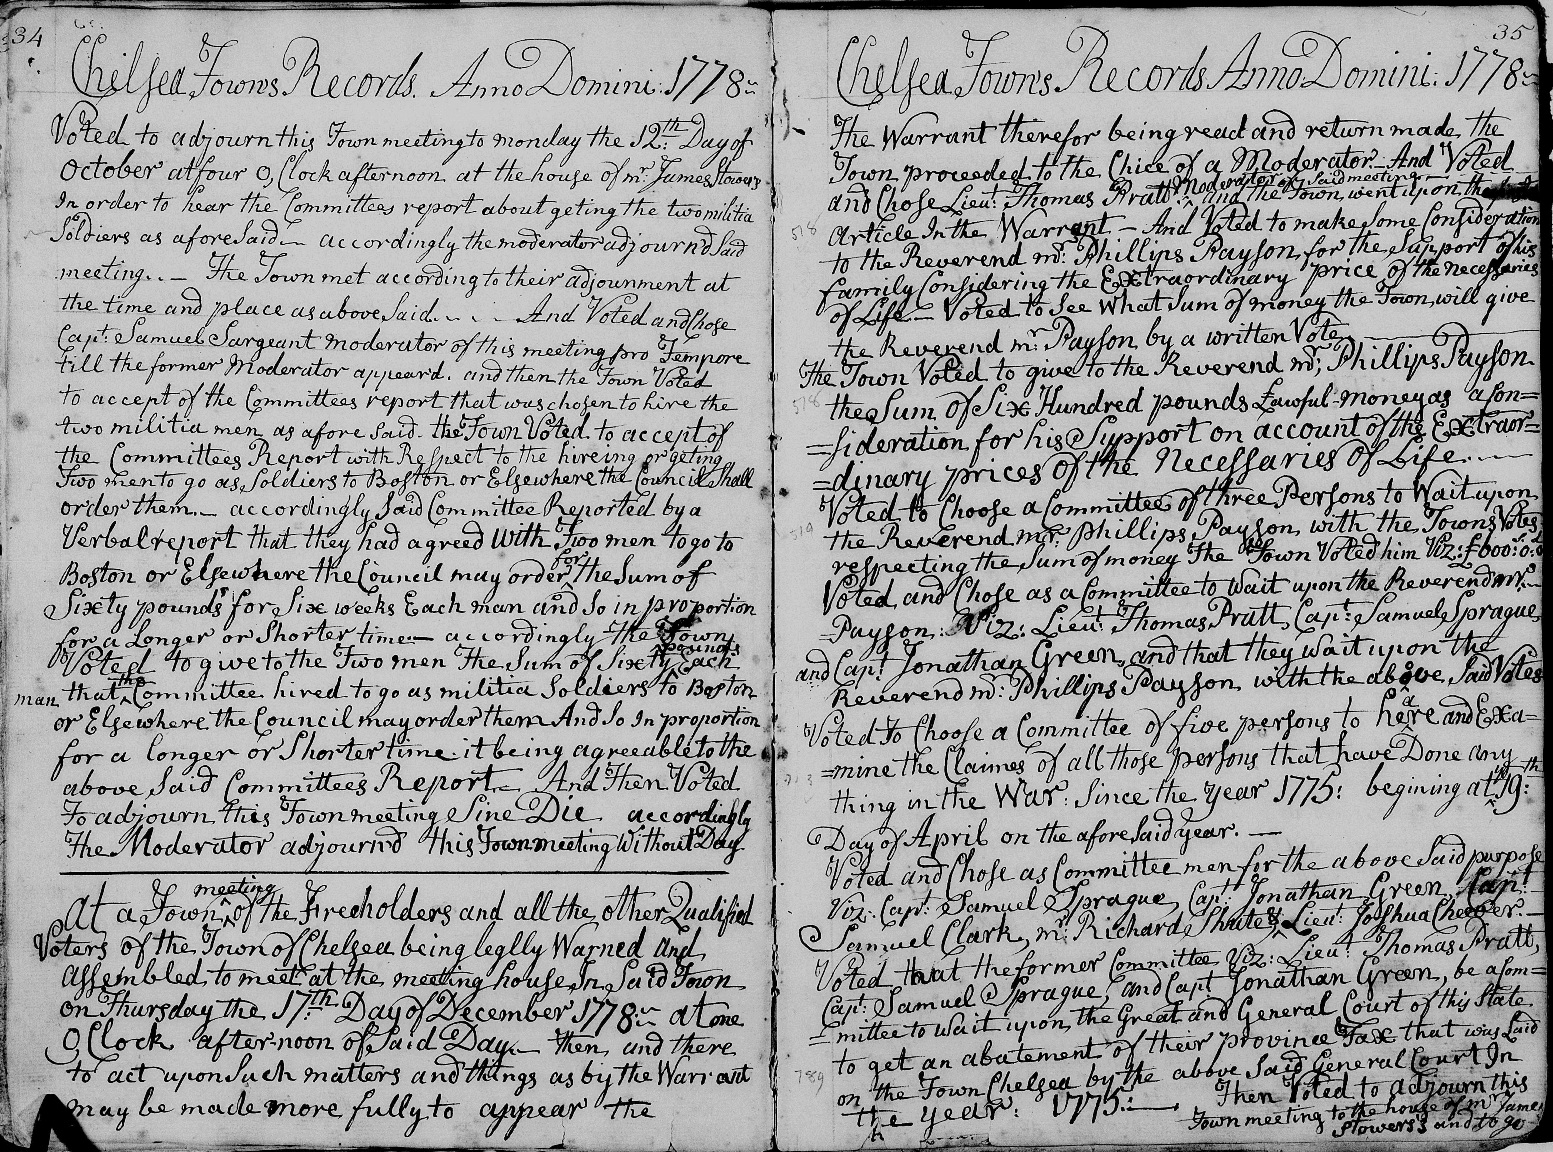 34
Chelsea Towns Records. Anno Domini: 1778
Voted to adjourn this Town meeting to monday the 12th: Day of
October at four O,Clock afternoon at the house of mr. James Stowers
In order to hear the Committees report about geting the two militia
Soldiers as aforeSaid accordingly the moderator adjournd Said
meeting. - The Town met according to their adjournment at
the time and place as above Said. - - - And Voted and Chose
Capt: Samuel Sargeant moderator of this meeting pro Tempore
till the former Moderator appeard. and then the Town Voted
to accept of the Committees report that was chosen to hire the
two militia men as afore Said. the Town Voted to accept of
the Committees Report with Respect to the hireing or geting
Two men to go as Soldiers to Boston or Elsewhere the Council Shall
order them - accordingly Said Committee Reported by a
Verbal report that they had agreed with Two men to go to
Boston or Elsewhere the Council may order for the Sum of
Sixty pounds for Six weeks Each man and So in proportion
for a Longer or Shorter time - accordingly the Town
Voted to give to the Two men The Sum of Sixty pounds Each
man that the Committee hired to go as militia Soldiers to Boston
or Elsewhere the Council may order them And So In proportion
for a longer or Shorter time it being agreeable to the
above Said Committees Report - And Then Voted
To adjourn this Town meeting Sine Die accordingly
The Moderator adjournd this Town meeting Without Day
At a Town meeting of the Freeholders and all the other Qualified
Voters of the Town of Chelsea being leglly Warned and
assembled to meet at the meeting house In Said Town
on Thursday the 17th: Day of December 1778 at one
O,Clock afternoon of Said Day - then and there
to act upon Such matters and things as by the Warrant
may be made more fully to appear the
35
Chelsea Towns Records Anno Domini: 1778
The Warrant therefor being read and return made the
Town proceeded to the Chice of a Moderator - And Voted
and Chose Lieut: Thomas Pratt Moderator of Said meeting - and the Town went upon the
518
article In the Warrant - And Voted to make Some Consideration
to the Reverend mr: Phillips Payson for the Support of his
family Considering the Extraordinary price of the necessaries
of Life - Voted to See What Sum of money the Town will give
the Reverend mr. Payson by a written Vote
The Town Voted to give to the Reverend mr; Phillips Payson
518
the Sum of Six Hundred pounds Lawful money as a Con=
=sideration for his Support on account of the Extraor=
=dinary prices of the Necessaries of Life.
Voted to Choose a Committee of three Persons to Wait upon
519
the Reverend mr: Phillips Payson with the Towns Votes
respecting the Sum of money The Town Voted him Viz: £600:0:0
Voted and Chose as a Committee to Wait upon the Reverend mr.
=Payson: Viz: Lieut: Thomas Pratt Capt: Samuel Sprague
and Capt: Jonathan Green and that they wait upon the
Reverend mr: Phillips Payson with the above Said Votes
Voted To Choose a Committee of five persons to heare and Exa=
=mine the Claimes of all those persons that have Done any
thing in the War: Since the year 1775: begining at ye 19:th
Day of April on the afore Said year. -
Voted and Chose as Committee men for the above Said purpose
Viz: Capt: Samuel Sprague, Capt: Jonathan Green, Capt:
Samuel Clark, mr: Richard Shute, & Lieut: Joshua Cheever. -
Voted that the former Committee Viz: Lieut: Thomas Pratt,
Capt: Samuel Sprague, and Capt Jonathan Green, be a Com=
=mittee to Wait upon the Great and General Court of this State
to get an abatement of their province Tax that was Laid
789
on the Town Chelsea by the above Said General Court In
the year: 1775: Then Voted to adjourn this
Town meeting to the house of mr James
Stowers's and to go